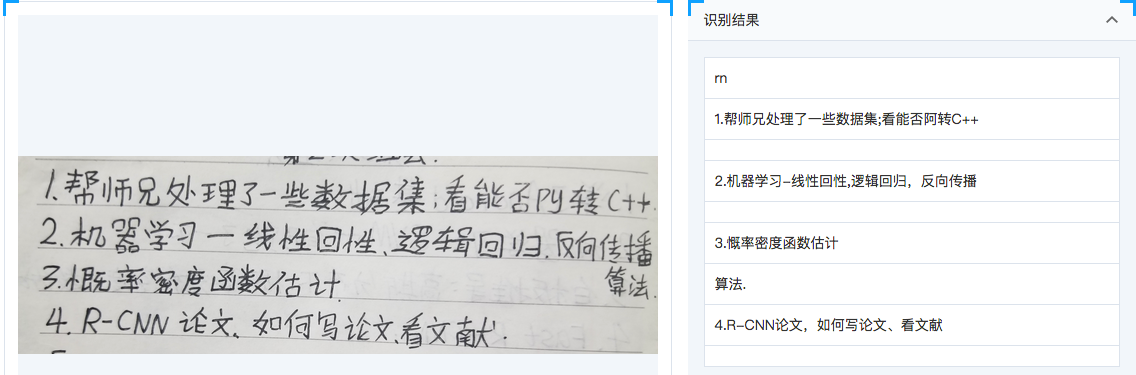 1.帮师兄处理了一些数据集;看能否PY转C++.
2.机器学习一线性回性、逻辑回归.反向传播
算法.
3.概率密度函数估计
4.R-CNN 论文、如何写论文、看文献.
识别结果
rn
1.帮师兄处理了一些数据集;看能否阿转C++
2.机器学习-线性回性,逻辑回归，反向传播
3.慨率密度函数估计
算法.
4.R-CNN论文，如何写论文、看文献